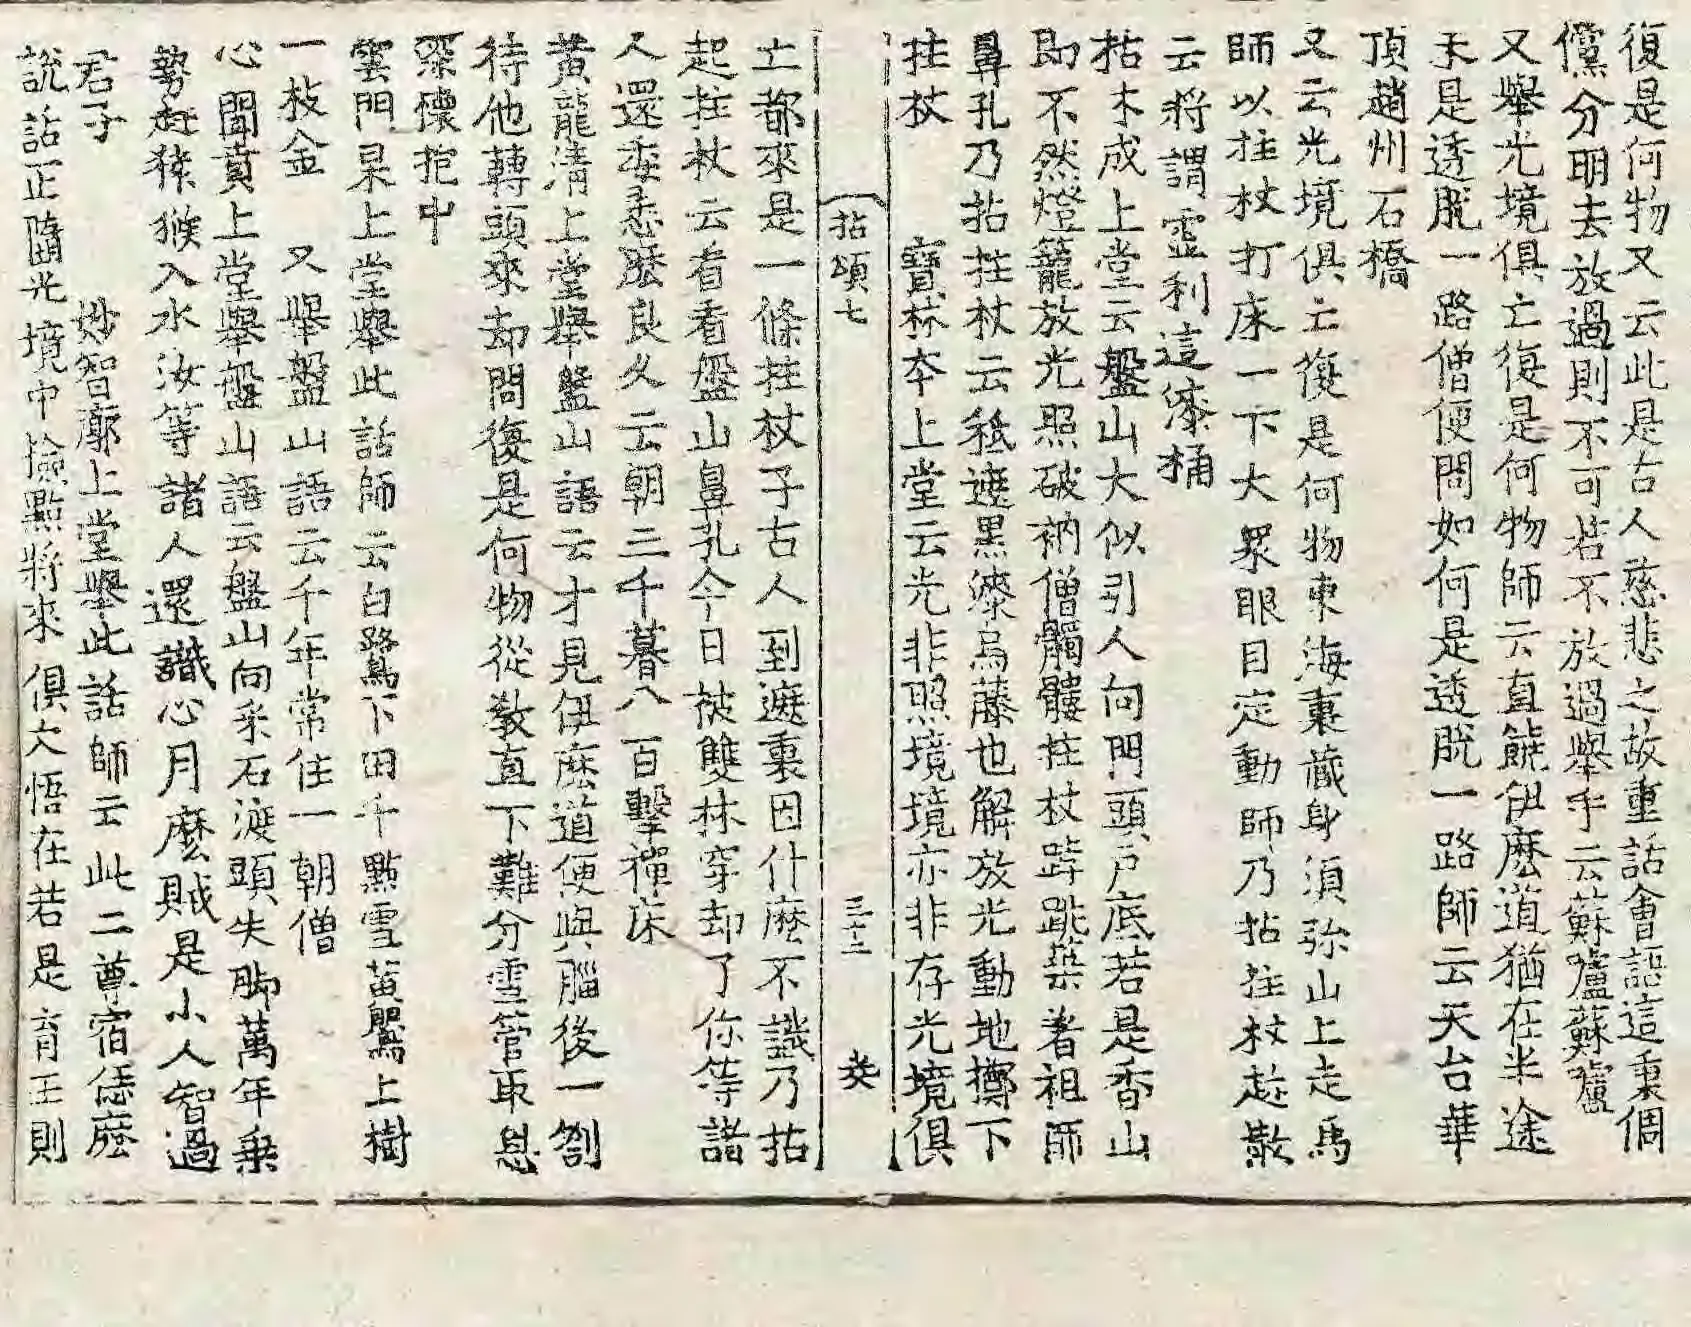 復是何物又云此是古人慈悲之故重話會語這裏倜
儻分明去放過則不可若不放過擧手云蘇嚧蘇嚧
又擧光境俱亡復是何物師云直饒伊麽道猶在半途
未是透脫一路僧便問如何是透脫一路師云天台華
頂趙州石橋
又云光境俱亡復是何物東海裏藏身須弥山上走馬
師以拄杖打床一下大衆眼目定動師乃拈拄杖趂散
云將謂靈利這漆桶
枯木成上堂云盤山大似引人向門頭戶底若是香山
即不然燈籠放光照破衲僧髑髏拄杖𨁝跳築着祖師
鼻孔乃拈拄杖云秪遮黑漆烏藤也解放光動地擲下
拄杖　寶林本上堂云光非照境境亦非存光境俱
拈頌七　三十二　癸
亡都來是一條拄杖子古人到遮裏因什麽不識乃拈
起拄杖云看看盤山鼻孔今日被雙林穿却了你等諸
人還委悉麽良久云朝三千暮八百擊禪床
黃龍淸上堂擧盤山語云才見伊麽道便與腦後一劄
待他轉頭來却問復是何物從敎直下難分雪管取恩
深懷抱中
雲門杲上堂擧此話師云白鷺下田千點雪黃鸎上樹
一枝金　又擧盤山語云千年常住一朝僧
心聞賁上堂擧盤山語云盤山向釆石渡頭失脚萬年乘
勢赶猢猻入水汝等諸人還識心月麽賊是小人智過
君子　妙智廓上堂擧此話師云此二尊宿恁麽
說話正隨光境中撿點將來俱欠悟在若是育王則